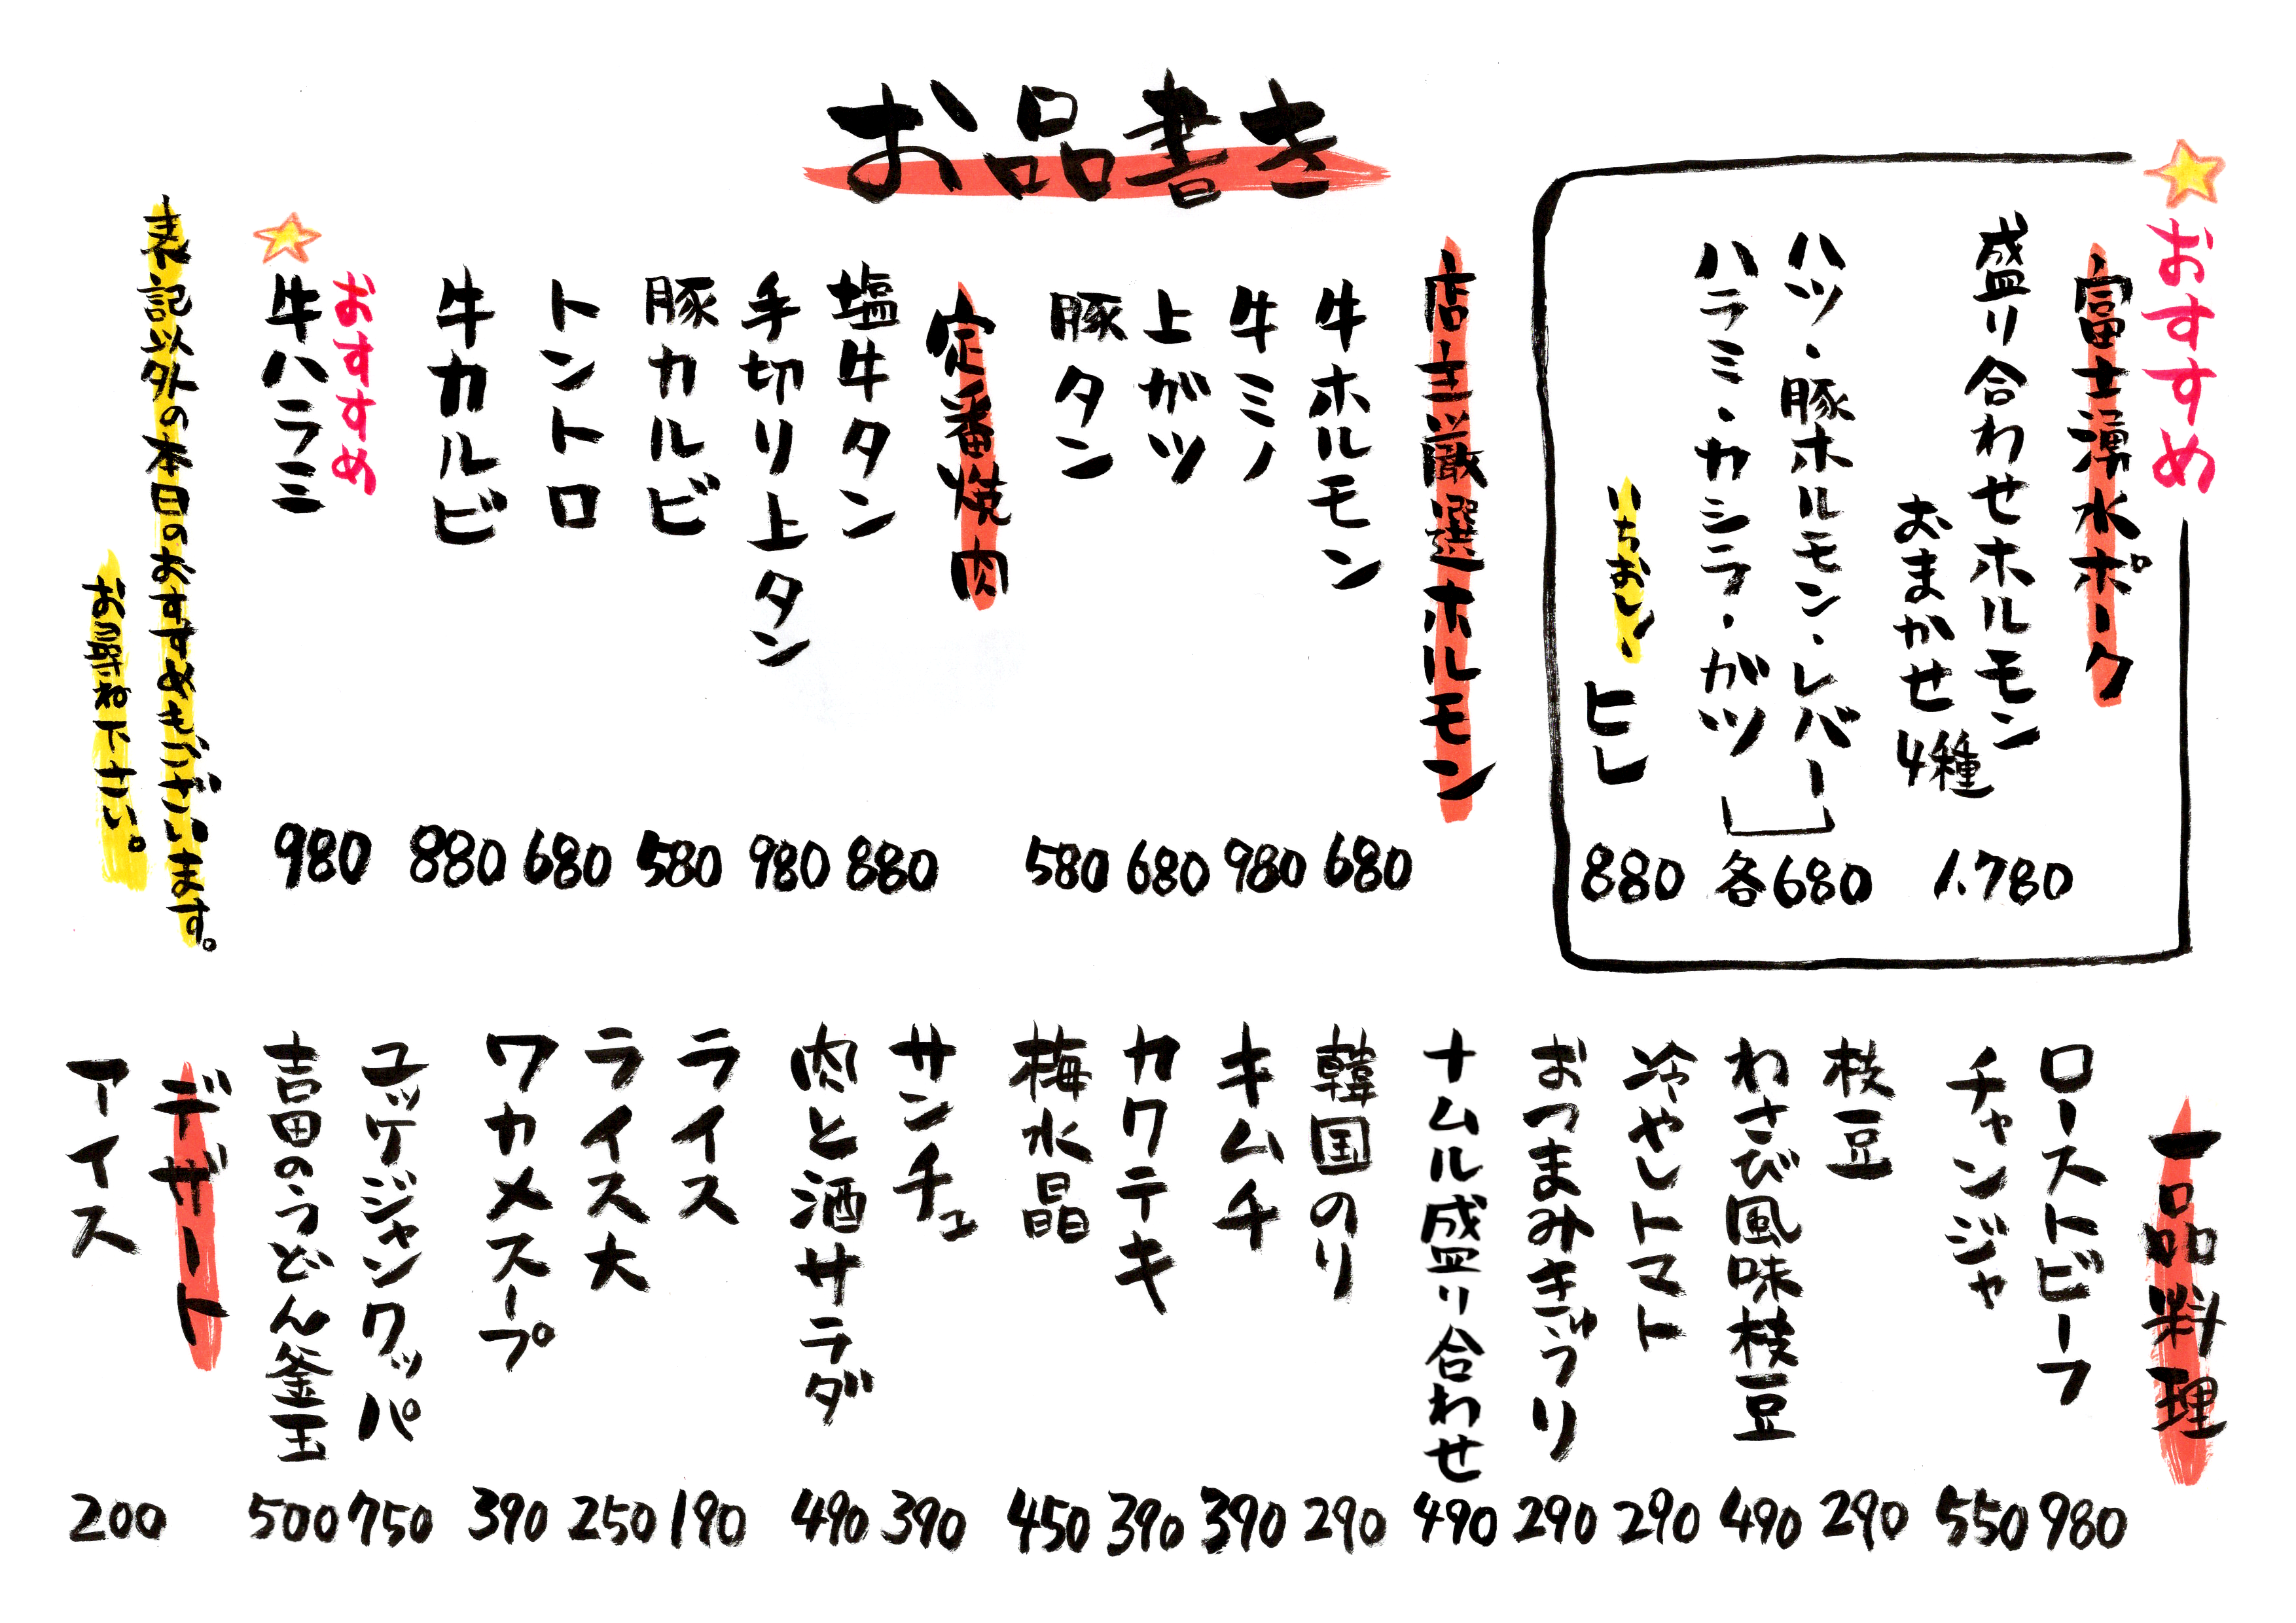 お品書き
おすすめ
富士湧水ポーク
盛り合わせホルモン
おまかせ4種
1.780
ハツ・豚ホルモン・レバー
ハラミ・カシラ・ガツ
各680
いちおし!
ヒレ
880
店主厳選ホルモン
牛ホルモン
680
牛ミノ
980
上ガツ
680
豚タン
580
定番焼肉
塩牛タン
880
手切り上タン
980
豚カルビ
580
トントロ
680
牛カルビ
880
おすすめ
牛ハラミ
980
表記以外の本日のおすすめもございます。
お尋ね下さい。
一品料理
ローストビーフ
980
チャンジャ
550
枝豆
290
わさび風味枝豆
490
冷やしトマト
290
おつまみきゅうり
290
ナムル盛り合わせ
490
韓国のり
290
キムチ
390
カクテキ
390
梅水晶
450
サンチュ
390
肉と酒サラダ
490
ライス
190
ライス大
250
ワカメスープ
390
ユッケジャンクッパ
750
吉田のうどん釜玉
500
デザート
アイス
200